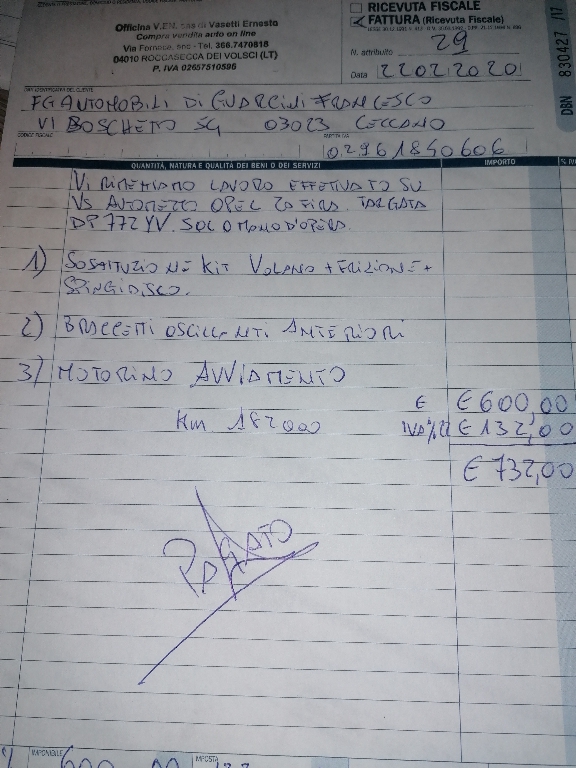 RICEVUTA FISCALE
FATTURA (Ricevuta Fiscale)
Officina V.EN. sas di Vasetti Ernesto
Compro vendita auto on line
Via Fornace, snc - Tel. 366.7470818
04010 ROCCASECCA DEI VOLSCI (LT)
P. IVA 02657510596
N. attribuito 29
Data 22 02 2020
DBN 830427 /17
FG AUTOMOBILI DI GUARCINI FRANCESCO
VI BOSCHETO 59 03023 CECCANO
CODICE FISCALE
PARTITA IVA
02961840606
QUANTITÀ, NATURA E QUALITÀ DEI BENI O DEI SERVIZI IMPORTO % IVA
VI RIMETTIAMO LAVORO EFFETUATO SU
VS AUTOMEZZO OPEL ZAFIRA TARGATA
DP 772 YV. SOLO MANO D'OPERA
1) SOSTITUZIONE KIT VOLANO + FRIZIONE +
SPINGIDISCO.
2) BRACCETTI OSCILLANTI ANTERIORI
3) MOTORINO AVVIAMENTO
€ € 600,00
Km 182000 IVA % 22 € 132,00
€ 732,00
PAGATO
IMPONIBILE
IMPOSTA